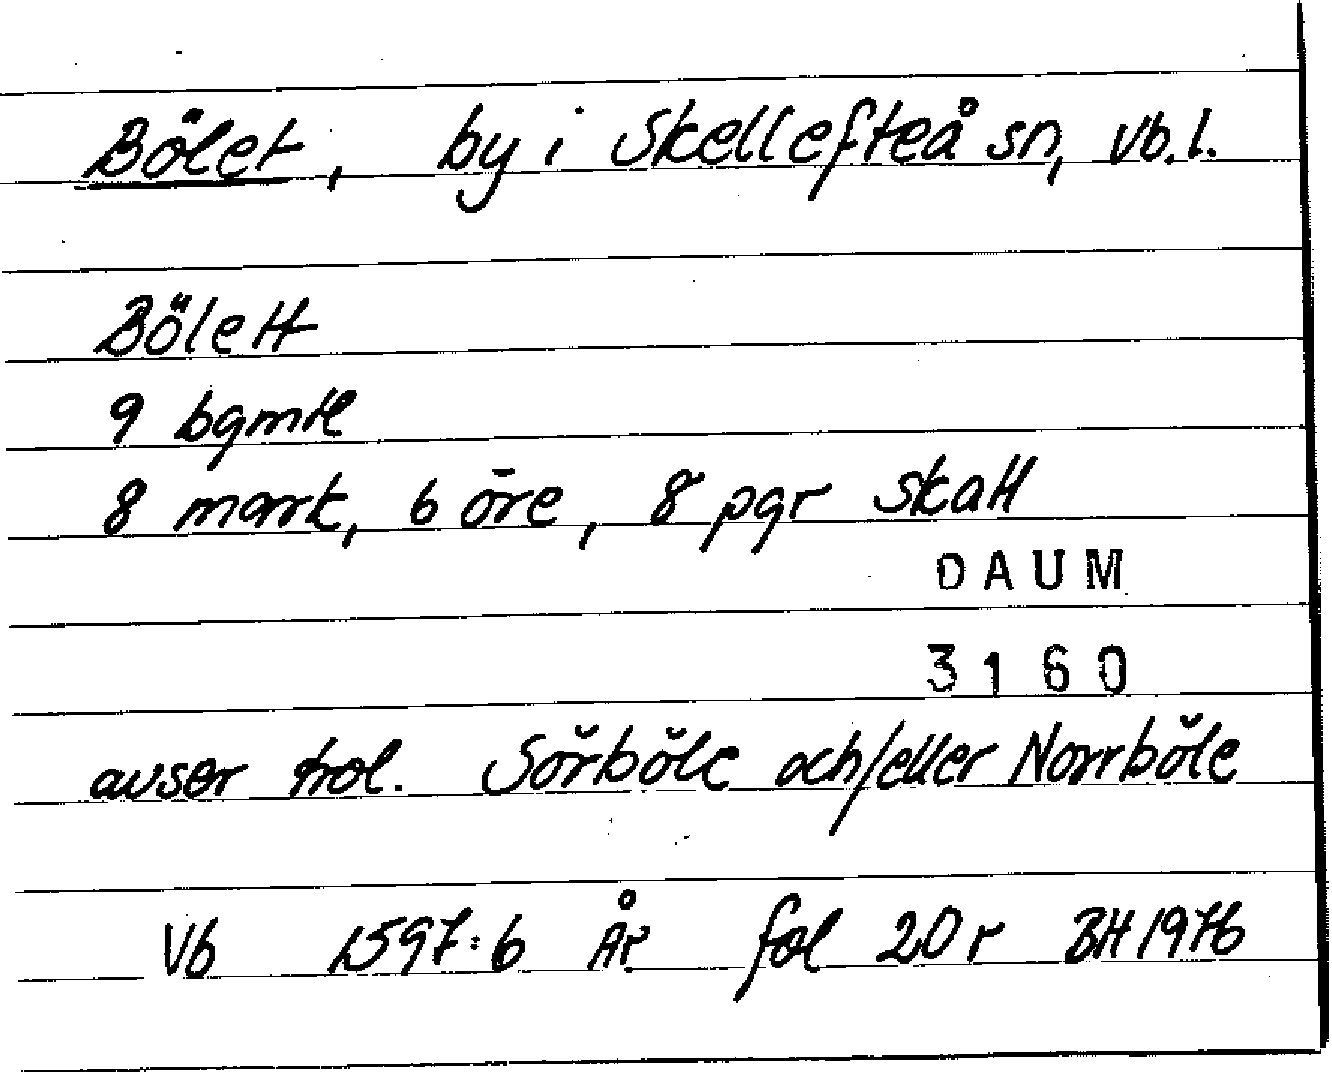 Bölet, by i Skellefteå sn, Vb.l.
Bölett
9 bgmtl
8 mark, 6 öre, 8 pgr skatt
DAUM
3160
avser trol. Sörböle och/eller Norrböle
Vb 1597:6 År fol 20r BH 1976